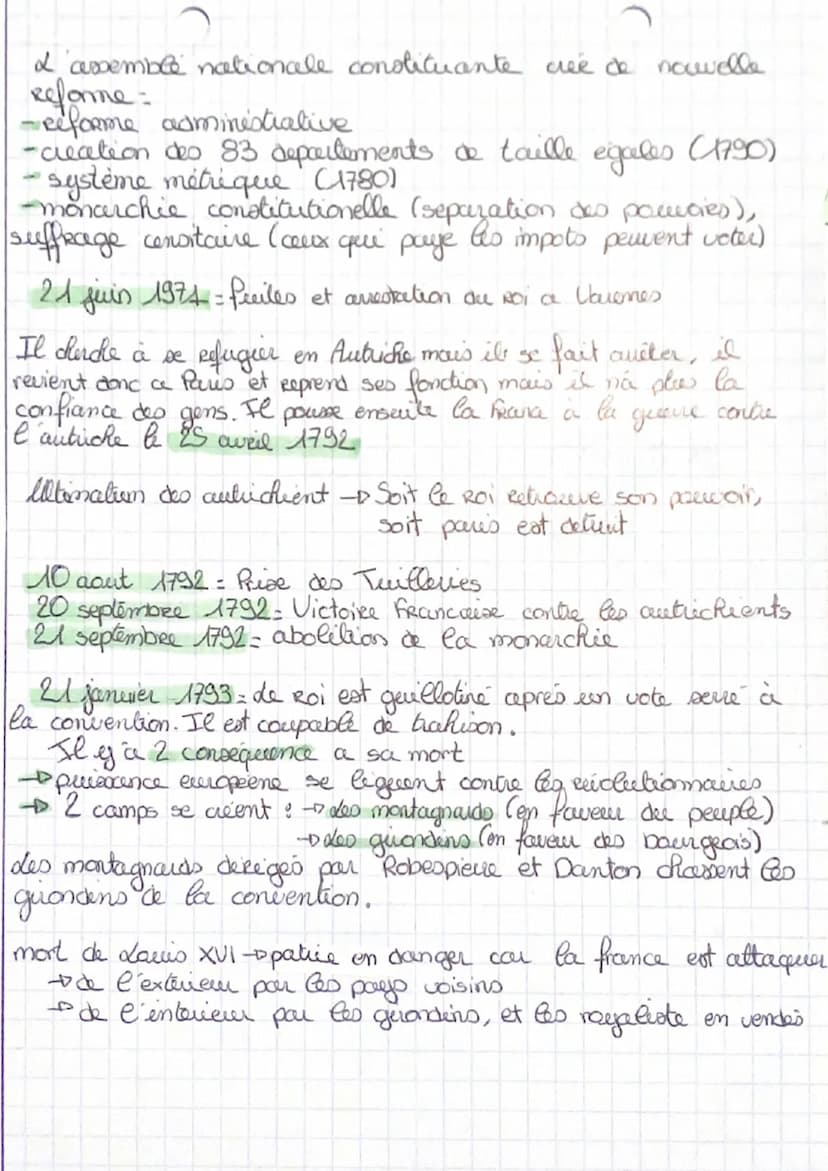 L'assemblé nationale constituante creé de nouvelle
reforme :
- reforme administrative
- creation des 83 departements de taille egales (1790)
- système métrique (1780)
- monarchie constitutionelle (separation des pouvoirs),
suffrage censitaire (ceux qui paye les impots peuvent voter)
21 juin 1971 = fuites et arrestation du roi a Varennes
Il cherche à se refugier en Autriche mais ils se fait arrêter, il
revient donc a Paris et reprend ses fonction mais il n'a plus la
confiance des gens. Il pousse ensuite la France à la guerre contre
l'autriche le 25 avril 1792
Ultimatum des autrichient → Soit le Roi retrouve son pouvoir,
soit paris est detruit
10 aout 1792 = Prise des Tuilleries
20 septembre 1792 = Victoire Francaise contre les autrichients
21 septembre 1792 = abolition de la monarchie
21 janvier 1793 = Le Roi est geuillotiné aprés un vote serré à
la convention. Il est coupable de trahison.
Il y'a 2 consequence a sa mort
→ puissance européene se liguent contre les révolutionnaires
→ 2 camps se créent : → les montagnards (en faveur du peuple)
→ les girondins (en faveur des bourgeois)
Les montagnards diriges par Robespierre et Danton chassent les
girondins de la convention.
mort de Louis XVI → patrie en danger car la france est attaquer
→ de l'extérieur par les pays voisins
→ de l'intérieur par les girondins, et les royaliste en vendée